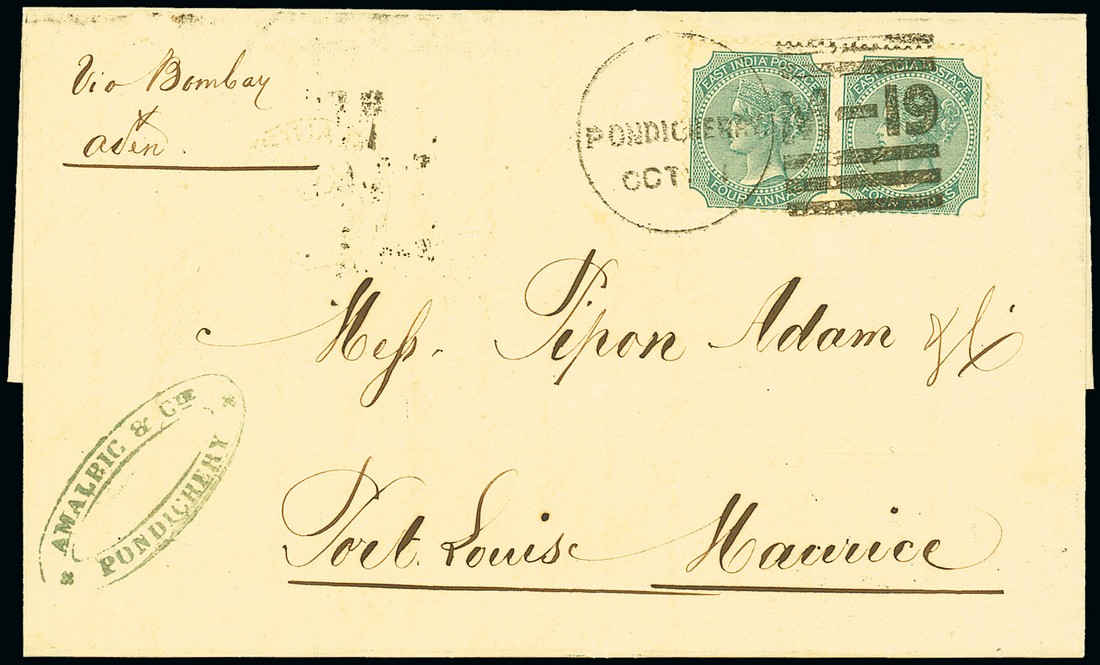 Via Bombay
&
Aden
PONDICHERRY
OCT
EAST INDIA POSTAGE
FOUR ANNAS
EAST INDIA POSTAGE
-19
Mess. Pipon Adam & Cie
Port Louis Maurice
AMALRIC & CIE
PONDICHERY